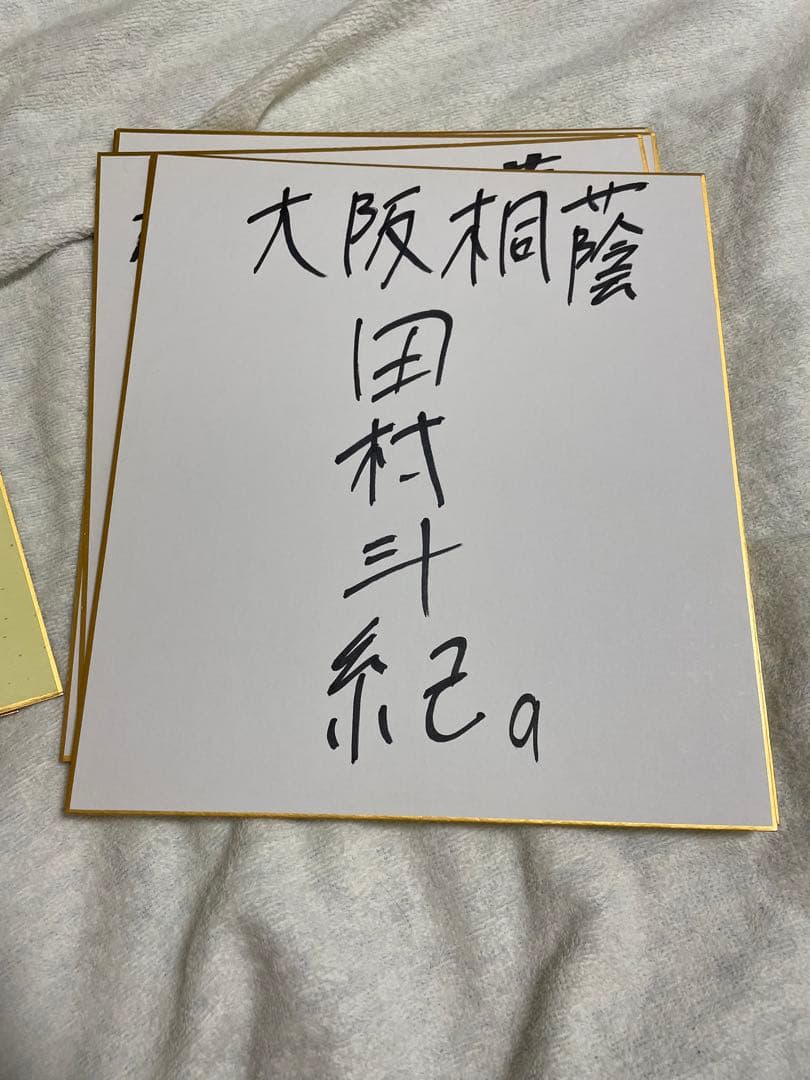 大阪桐蔭
田村斗紀。9